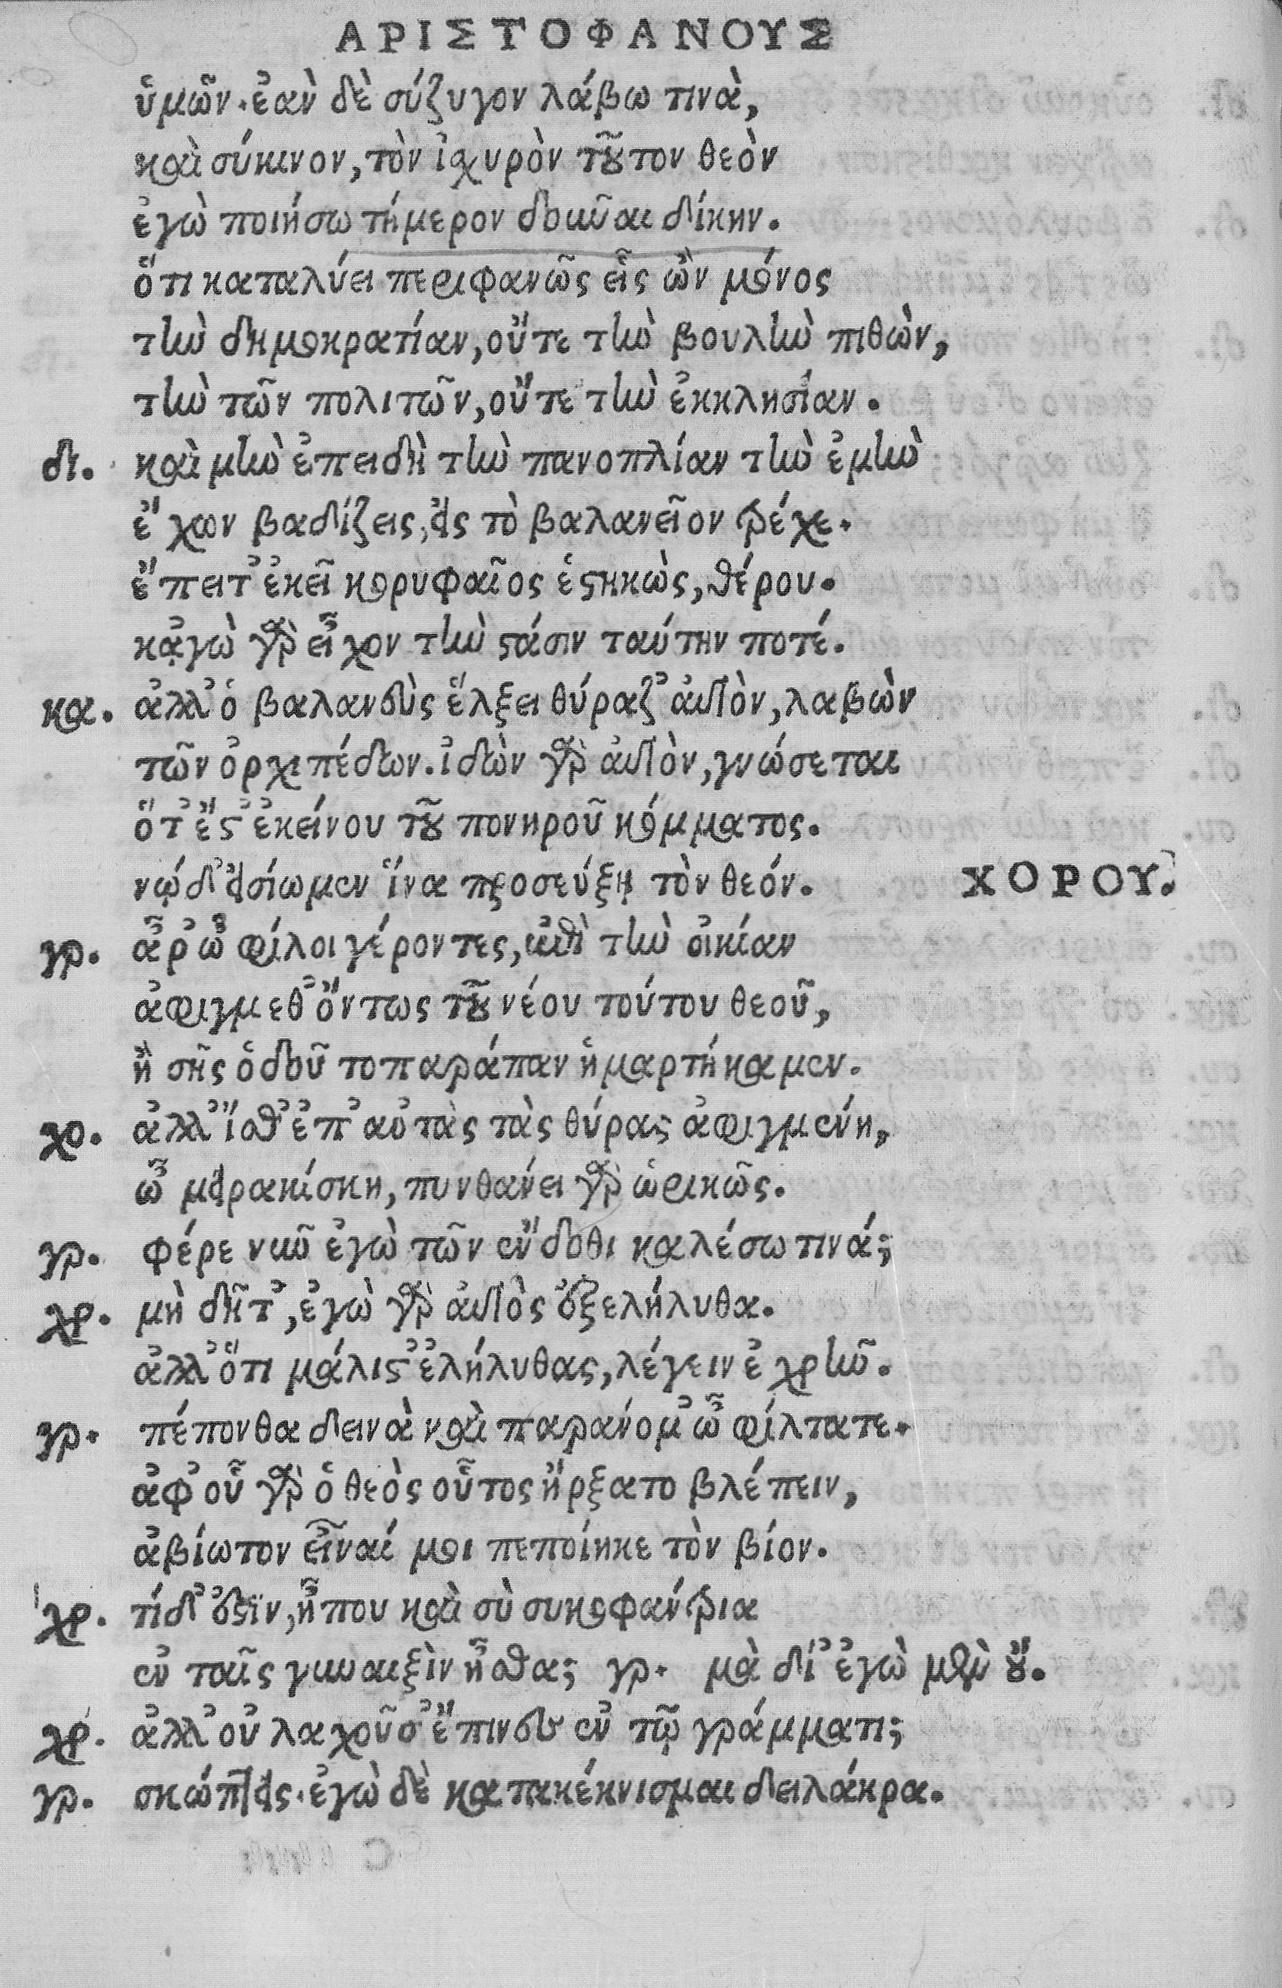 ΑΡΙΣΤΟΦΑΝΟΥΣ
ὑμῶν. ἐὰν δὲ σύζυγον λάβω τινὰ,
καὶ σύκινον, τὸν ἰσχυρὸν τοῦτον θεὸν
ἐγὼ ποιήσω τήμερον δοῦναι δίκην.
ὅτι καταλύει περιφανῶς εἷς ὢν μόνος
τὴν δημοκρατίαν, οὔτε τὴν βουλὴν πιθὼν,
τὴν τῶν πολιτῶν, οὔτε τὴν ἐκκλησίαν.
δι. καὶ μὴν ἐπειδὴ τὴν πανοπλίαν τὴν ἐμὴν
ἔχων βαδίζεις, εἰς τὸ βαλανεῖον τρέχε.
ἔπειτ' ἐκεῖ κορυφαῖος ἑστηκὼς, θέρου.
κᾀγὼ γὰρ εἶχον τὴν στάσιν ταύτην ποτέ.
κα. ἀλλ' ὁ βαλανεὺς ἕλξει θύραζ' αὐτὸν, λαβὼν
τῶν ὀρχιπέδων. ἰδὼν γὰρ αὐτὸν, γνώσεται
ὅτ' ἔστ' ἐκείνου τοῦ πονηροῦ κόμματος.
νῴ δ' εἰσίωμεν ἵνα προσεύξῃ τὸν θεόν. ΧΟΡΟΥ.
γρ. ἆρ' ὦ φίλοι γέροντες, ἐπὶ τὴν οἰκίαν
ἀφιγμεθ' ὄντως τοῦ νέου τούτου θεοῦ,
ἢ τῆς ὁδοῦ τοπαράπαν ἡμαρτήκαμεν.
χο. ἀλλ' ἴσθ' ἐπ' αὐτὰς τὰς θύρας ἀφιγμένη,
ὦ μειρακίσκη, πυνθάνει γὰρ ὡρικῶς.
γρ. φέρε νῦν ἐγὼ τῶν ἔνδοθι καλέσω τινά;
χρ. μὴ δῆτ', ἐγὼ γὰρ αὐτὸς ἐξελήλυθα.
ἀλλ' ὅτι μάλιστ' ἐλήλυθας, λέγειν ἐχρῆν.
γρ. πέπονθα δεινὰ καὶ παράνομ' ὦ φίλτατε.
ἀφ' οὗ γὰρ ὁ θεὸς οὗτος ἤρξατο βλέπειν,
ἀβίωτον εἶναί μοι πεποίηκε τὸν βίον.
χρ. τί δ' ἐστϊν, ἦ που καὶ σὺ συκοφάντρια
ἐν ταῖς γυναιξὶν ἦσθα; γρ. μὰ δί' ἐγὼ μὲν οὔ.
χρ. ἀλλ' οὐ λαχοῦσ' ἔπινες ἐν τῷ γράμματι;
γρ. σκώπτεις. ἐγὼ δὲ κατακέκνισμαι δειλάκρα.